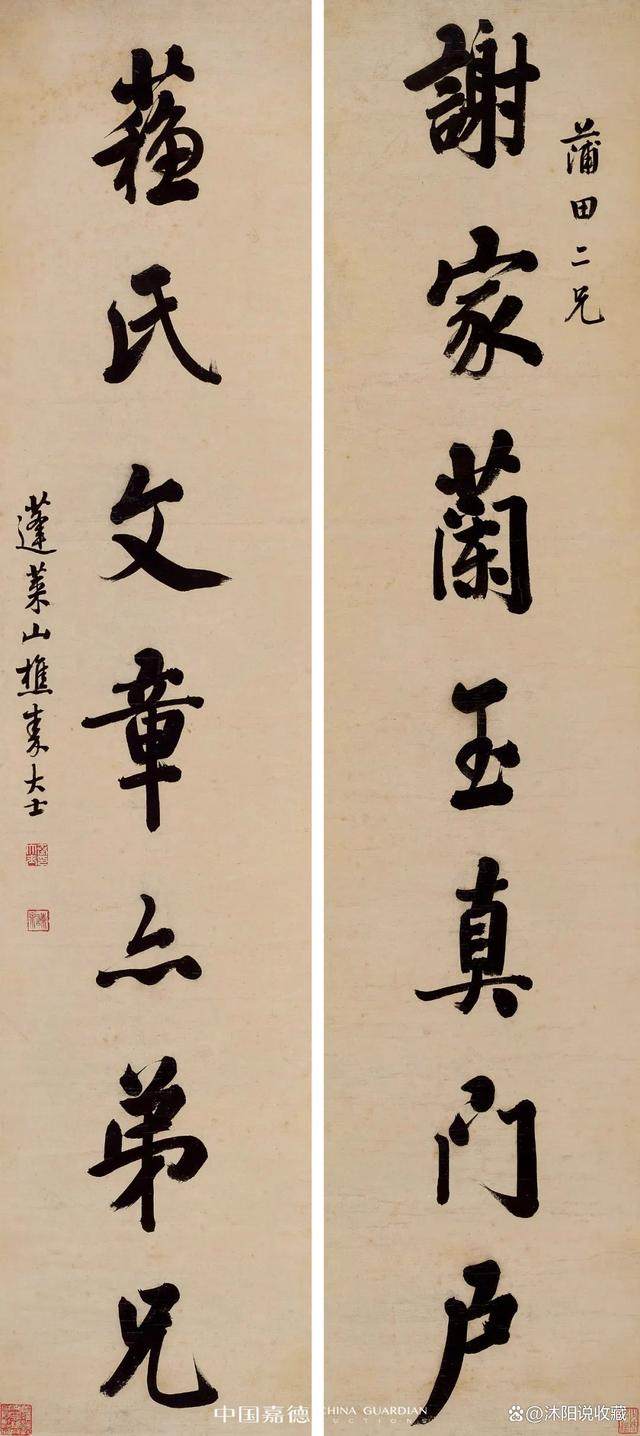 蒲田二兄
謝家蘭玉真门户
蘇氏文章亦弟兄
蓬莱山樵秦大士
中国嘉德 CHINA GUARDIAN
AUCTIONS
沐阳说收藏